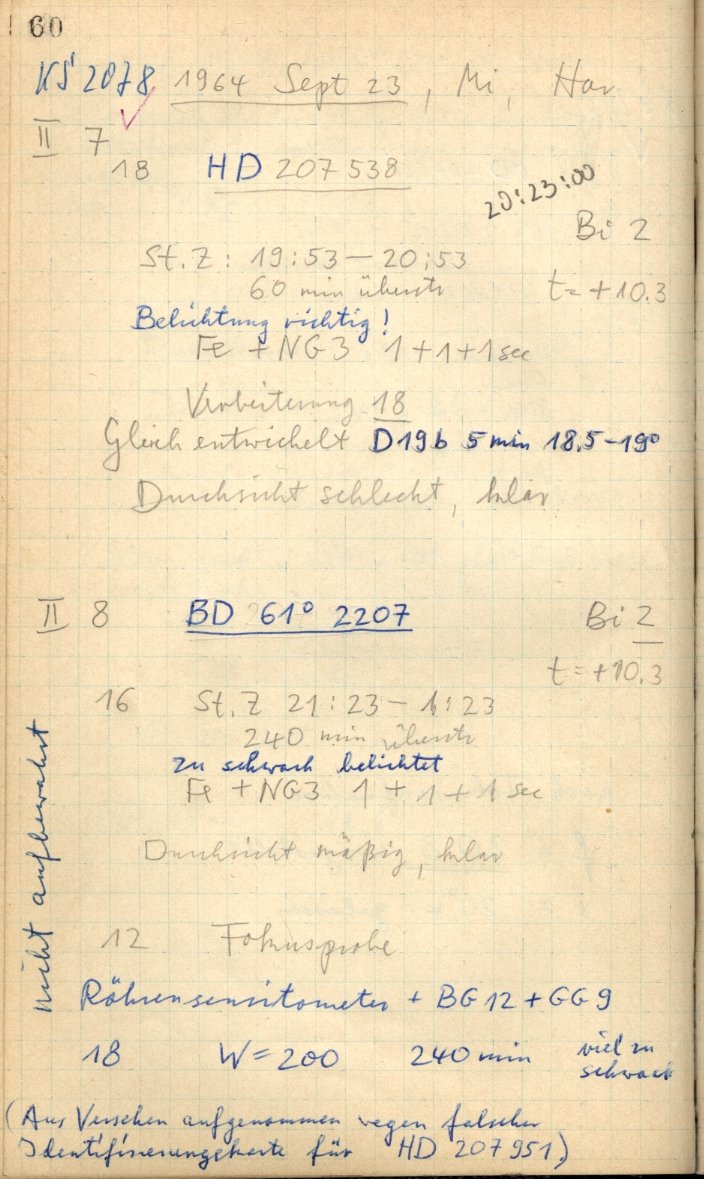 60
KŠ 2078 1964 Sept 23, Mi, Har
II 7
18 HD 207538
20:23:00
Bi 2
St. Z: 19:53 – 20:53
60 min überstr t = +10.3
Belichtung richtig!
Fe + NG3 1+1+1 sec
Verbeiterung 18
Gleich entwickelt D19b 5 min 18,5–19°
Durchsicht schlecht, klar
II 8 BD 61° 2207 Bi 2
t = +10.3
16 St. Z 21:23 – 1:23
240 min überstr
zu schwach belichtet
Fe + NG3 1 + 1 + 1 sec
Durchsicht mäßig, klar
nicht aufbewahrt
12 Fokusprobe
Röhrensensitometer + BG 12 + GG 9
18 W = 200 240 min viel zu
schwach
(Aus Versehen aufgenommen wegen falscher
Identifizierungskarte für HD 207951)